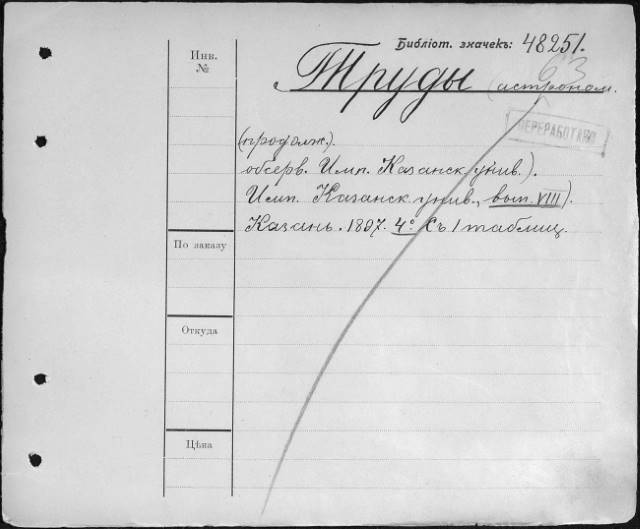 Библіот. значекъ: 48251.
63
Инв.
№
Труды (астроном.
ПЕРЕРАБОТАНО
(продолж.).
обсерв. Имп. Казанск. унив.).
Имп. Казанск. унив., вып. VIII).
Казань. 1897. 4° Съ 1 таблиц.
По заказу
Откуда
Цѣна